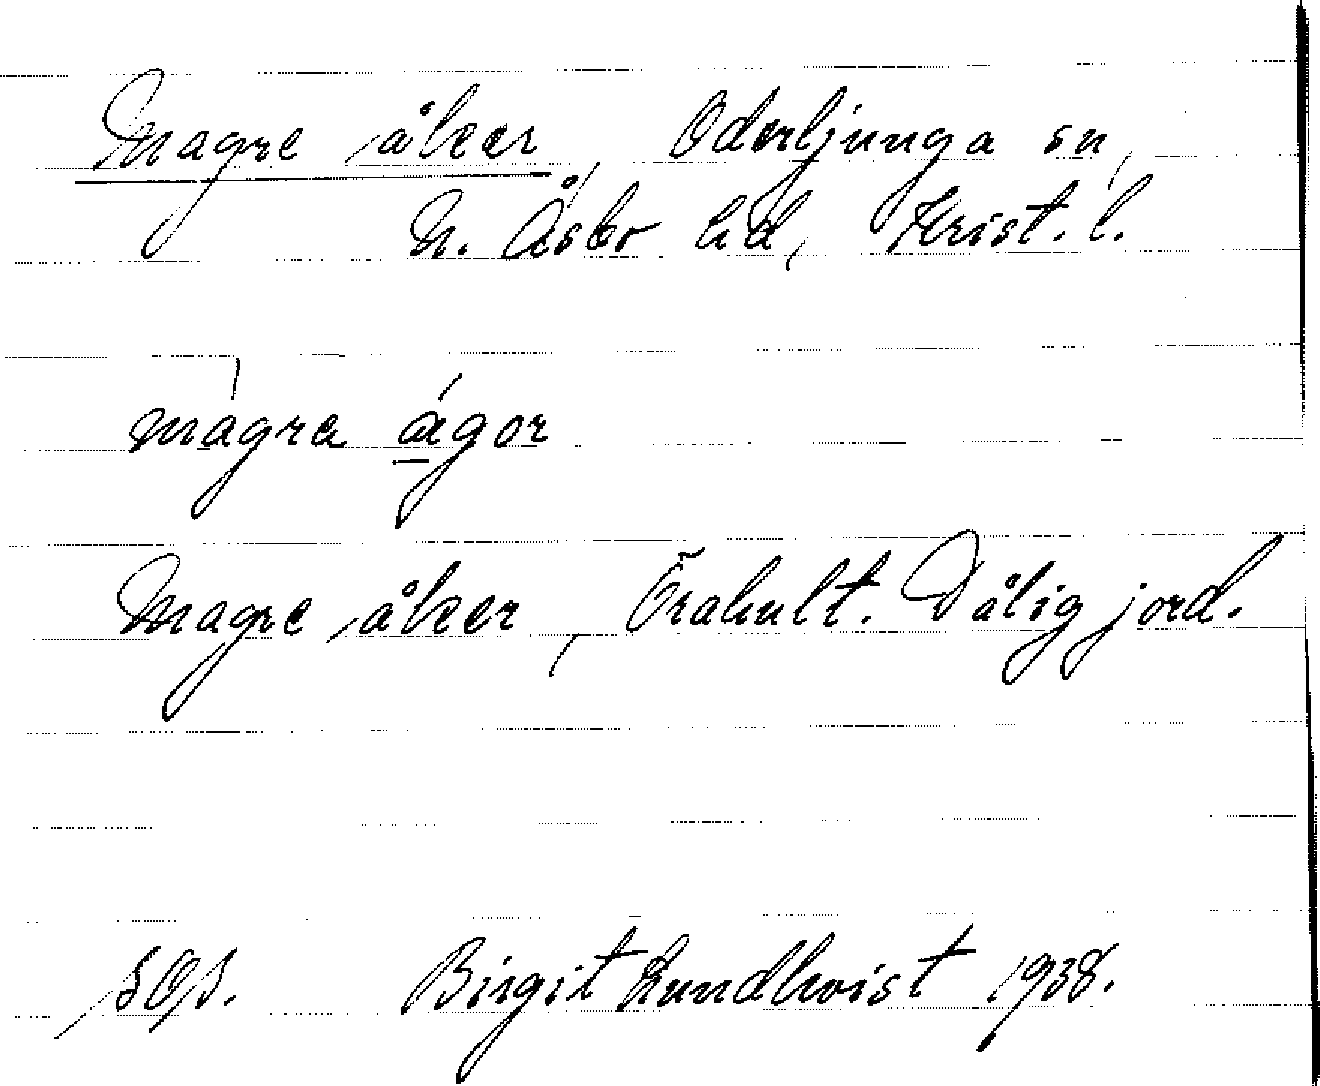 Magre åker, Oderljunga sn,
N. Åsbo hd, Krist. l.
mágra ágor
Magre åker, Örahult. Dålig jord.
Birgit Lundkvist 1938.